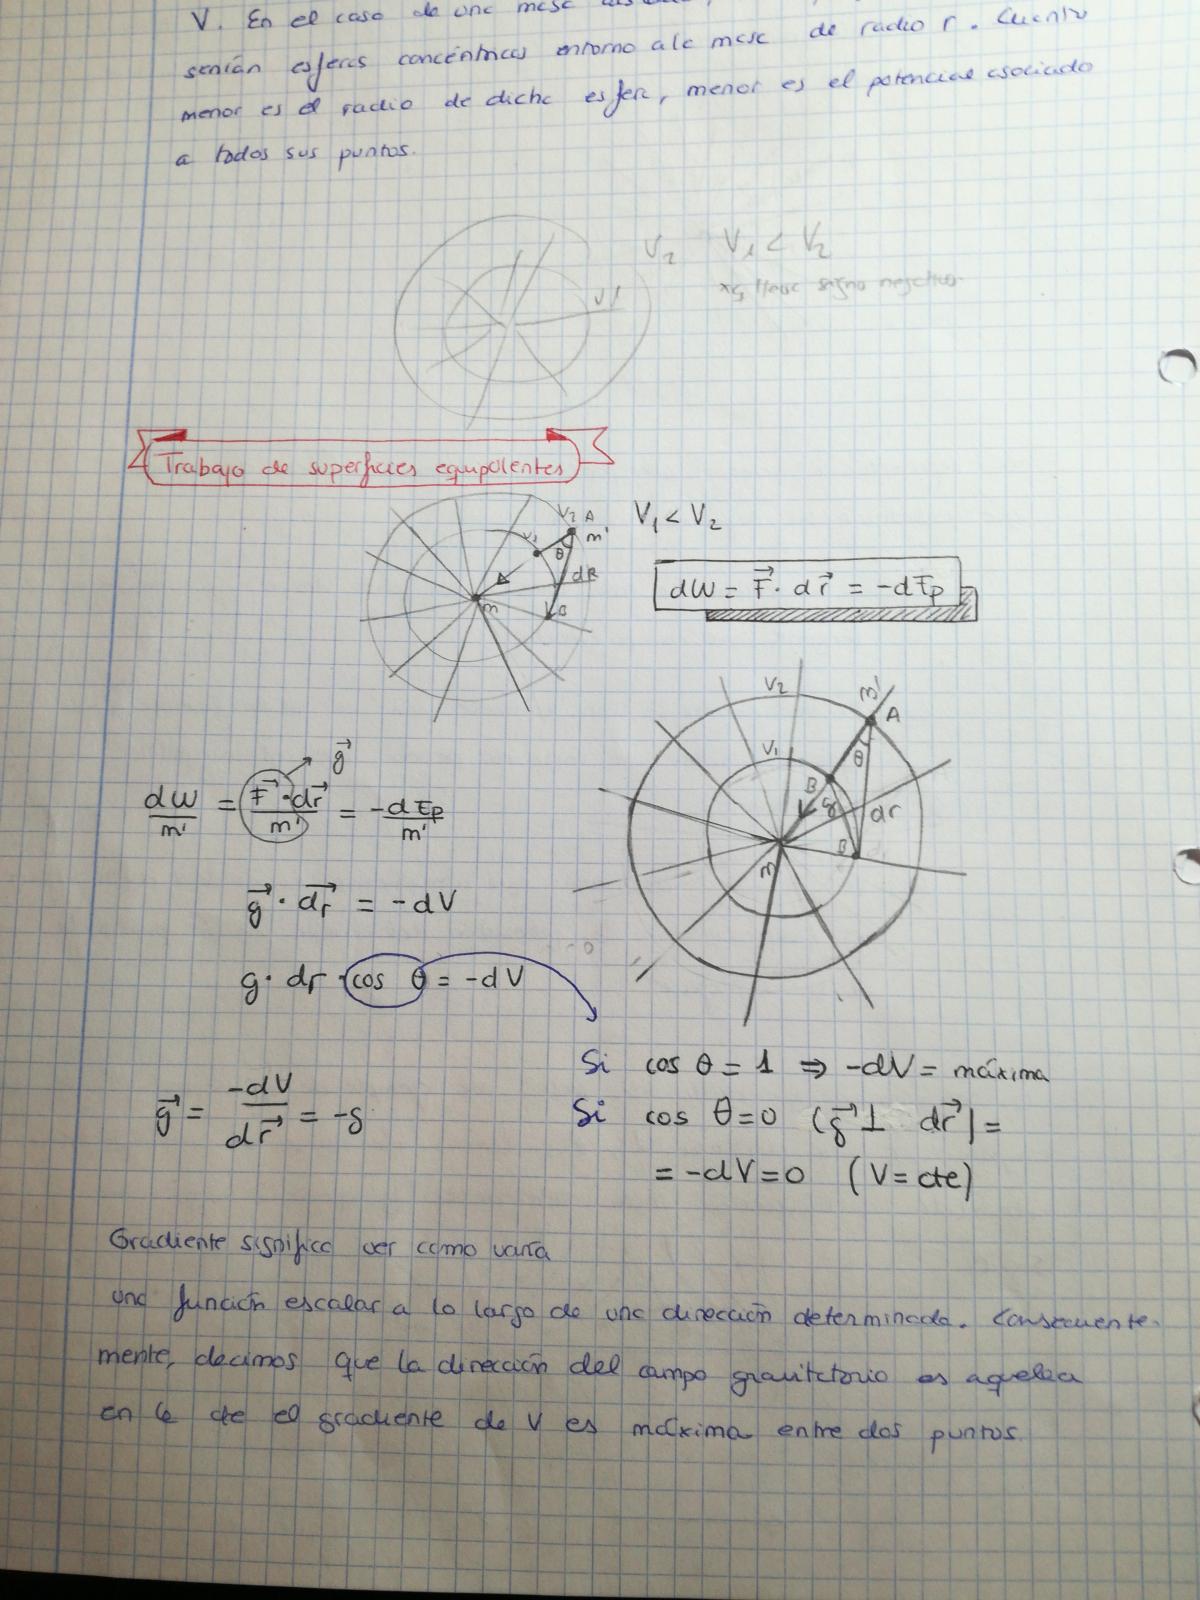 V. En el caso de una masa
serían esferas concéntricas entorno a la masa de radio r. Cuanto
menor es el radio de dicha esfera, menor es el potencial asociado
a todos sus puntos.
V2 V1 < V2
V1
signo negativo
Trabajo de superficies equipolentes
V2 A V1 < V2
V1 m'
θ
dR
m B
dW = F⃗ · dr⃗ = -dEp
V2 m' A
V1 θ
B
g dr
B
m
g⃗
dW/m' = F⃗ · dr⃗/m' = -dEp/m'
g⃗ · dr⃗ = -dV
g · dr · cos θ = -dV
Si cos θ = 1 ⇒ -dV = máxima
g⃗ = -dV/dr⃗ = -g
Si cos θ = 0 (g⃗ ⊥ dr⃗) =
= -dV = 0 (V = cte)
Gradiente significa ver como varía
una función escalar a lo largo de una dirección determinada. Consecuente-
mente, decimos que la dirección del campo gravitatorio es aquella
en la el gradiente de V es máxima entre dos puntos.